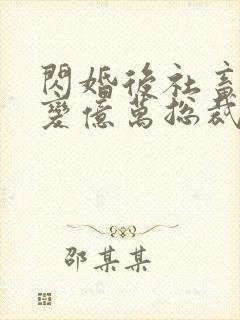 閃婚後社畜
變億萬總裁
邵某某